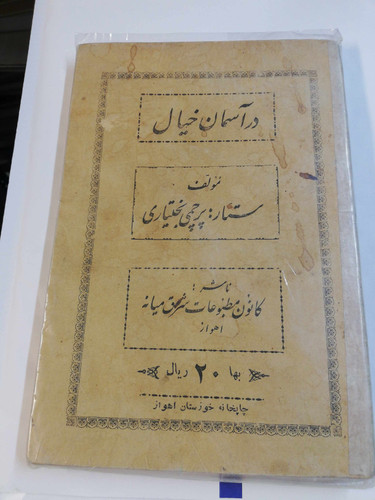 در آسمان خیال
مؤلف
ستمار: پرچمی بختیاری
ناشر:
کانون مطبوعات شرق میانه
اهواز
بها ۲۰ ریال
چاپخانه خوزستان اهواز